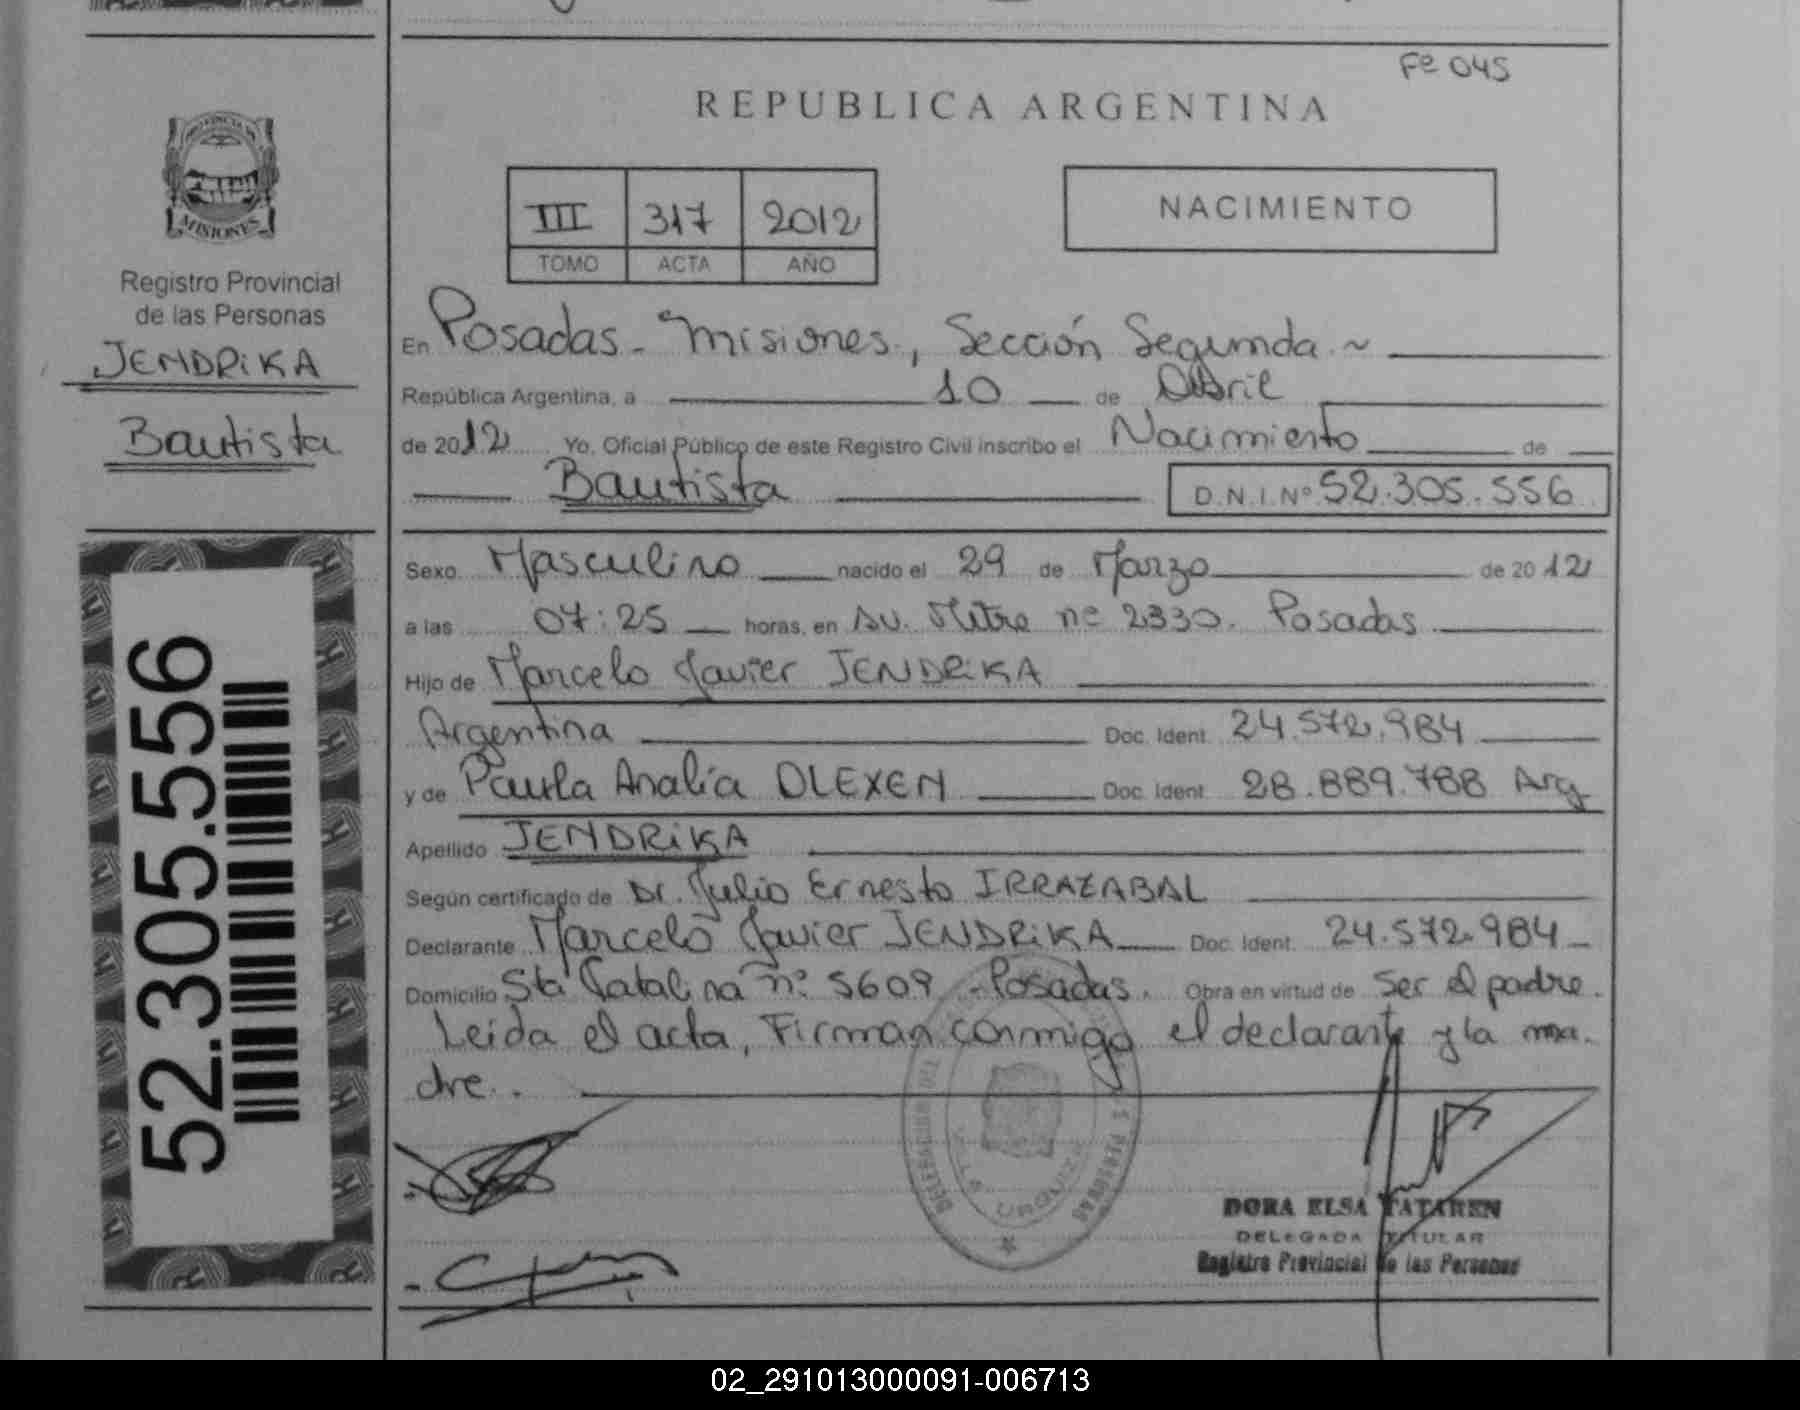 Fe 045
REPUBLICA ARGENTINA
PROVINCIA DE
MISIONES
Registro Provincial
de las Personas
JENDRIKA
Bautista
III 317 2012
TOMO ACTA AÑO
NACIMIENTO
En Posadas - Misiones, Sección Segunda ~
República Argentina, a 10 de Abril
de 2012 Yo, Oficial Público de este Registro Civil inscribo el Nacimiento de
Bautista D.N.I.Nº 52.305.556
52.305.556
Sexo Masculino nacido el 29 de Marzo de 2012
a las 07:25 horas, en Av. Mitre nº 2330. Posadas
Hijo de Marcelo Javier JENDRIKA
Argentina Doc. Ident. 24.572.984
y de Paula Analía OLEXEN Doc. Ident. 28.889.788 Arg
Apellido JENDRIKA
Según certificado de Dr. Julio Ernesto IRRAZABAL
Declarante Marcelo Javier JENDRIKA Doc. Ident. 24.572.984
Domicilio Sta Catalina nº 5609 - Posadas. Obra en virtud de Ser el padre.
Leida el acta, Firman conmigo el declarante y la ma.
dre.
URQUIZA
DORA ELSA TATAREN
DELEGADA TITULAR
Registro Provincial de las Personas
02_291013000091-006713